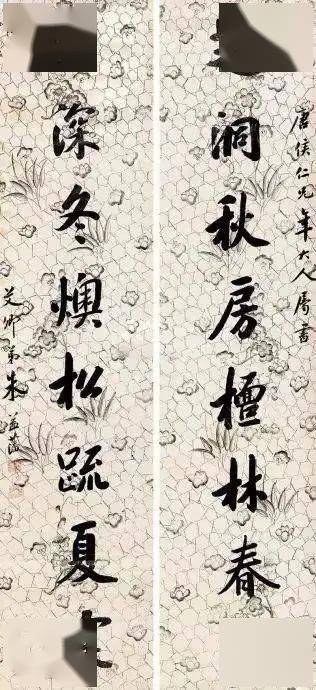 唐侯仁兄年大人属書
洞秋房檀林春
深冬燠松疏夏
艾卿弟朱益藩